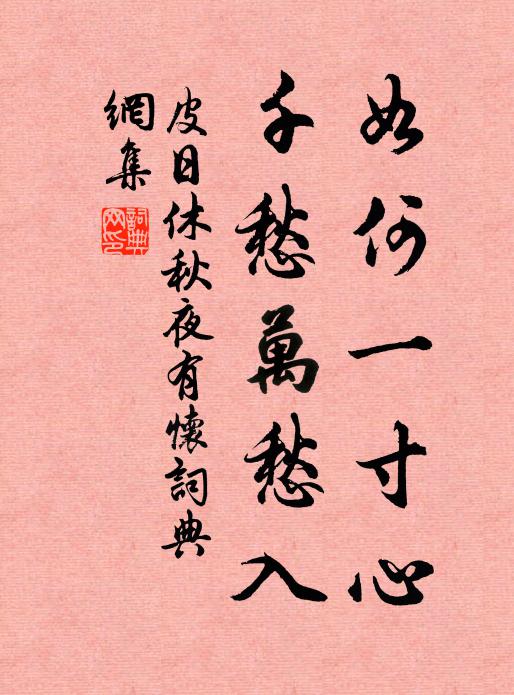 如何一寸心
千愁萬愁入
皮日休秋夜有懷詞典
網集
詞典网印